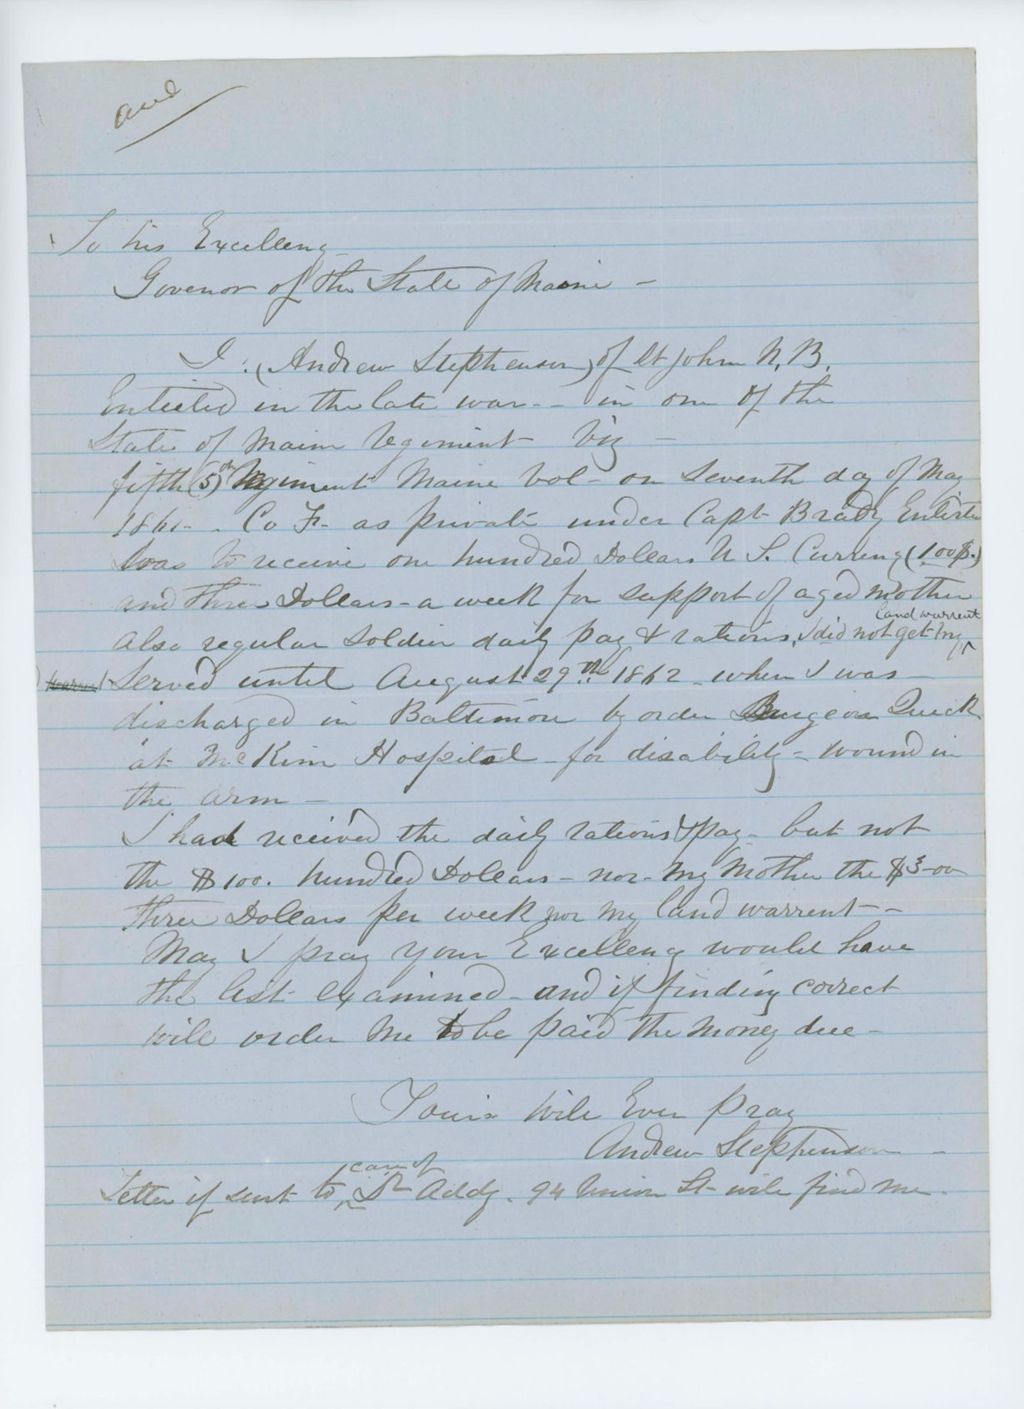 and
To his Excelleny
Govenor of the State of Maine -
I. (Andrew Stephenson) of St John N.B.
Enlisted in the late war - in one of the
State of Maine Regiment viz -
fifth (5)th Regiment Maine Vol - on Seventh day of May
1861 - Co F. as private under Capt Brady Enlisted
Was to receive one hundred Dollars U S. Curreny (100$.)
and three Dollars - a week for support of aged mother
land warrent
also regular Soldier daily pay & rations, I did not get my
Served until August 29th 1862 - when I was -
discharged in Baltimore by order Surgeon Quick
at McKim Hospital - for disability - wound in
the arm -
I had received the daily rations & pay - but not
the $100. hundred Dollars - nor my Mother the $3-00
three Dollars per week nor my land warrent -
May I pray your Excelleny would have
the list examined - and if finding correct
will order me to be paid the money due -
Yours will Ever pray
Andrew Stephenson -
care of
Letter if sent to Dr Addy. 94 Union St - will find me.